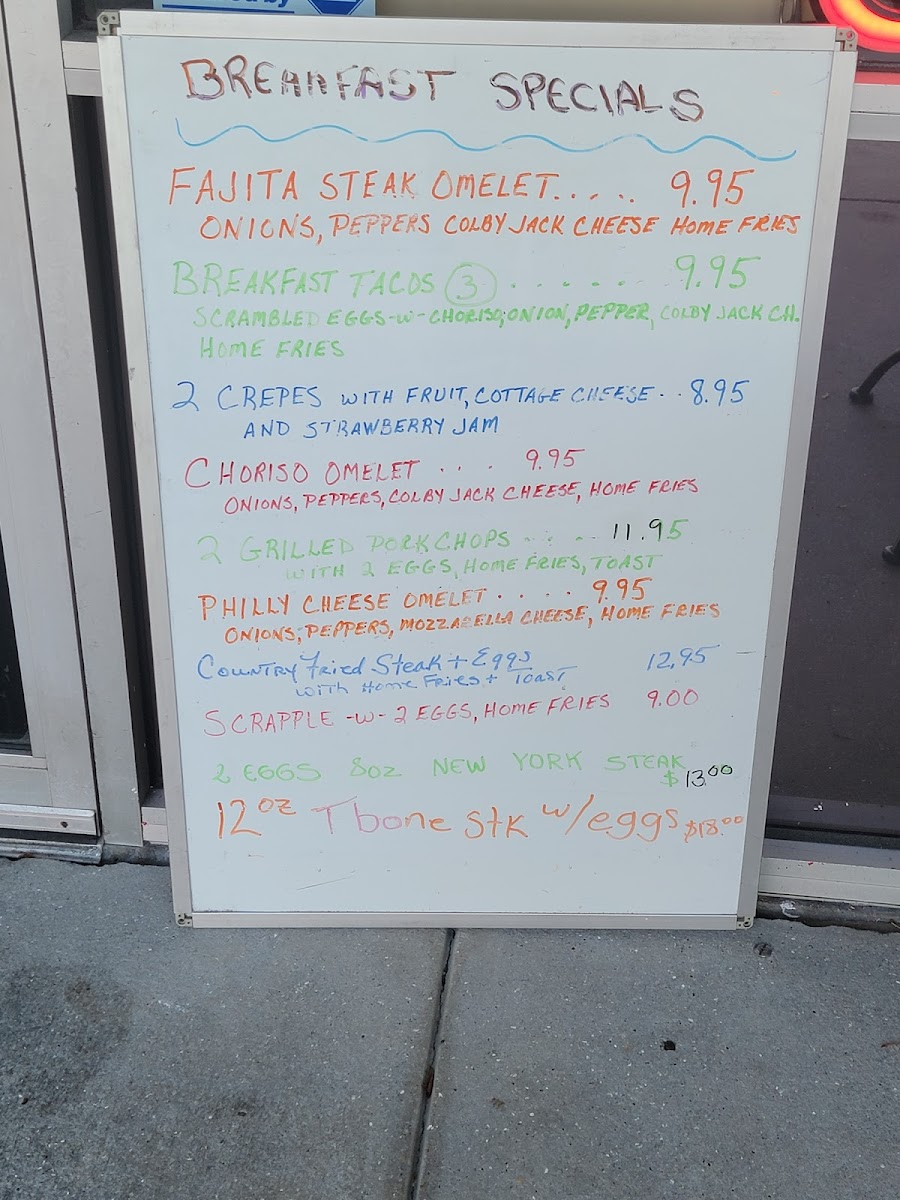 BREAKFAST SPECIALS
FAJITA STEAK OMELET..... 9.95
ONIONS, PEPPERS COLBY JACK CHEESE HOME FRIES
BREAKFAST TACOS 3 ...... 9.95
SCRAMBLED EGGS -W- CHORISO, ONION, PEPPER, COLBY JACK CH.
HOME FRIES
2 CREPES WITH FRUIT, COTTAGE CHEESE.. 8.95
AND STRAWBERRY JAM
CHORISO OMELET ... 9.95
ONIONS, PEPPERS, COLBY JACK CHEESE, HOME FRIES
2 GRILLED PORKCHOPS ..... 11.95
WITH 2 EGGS, HOME FRIES, TOAST
PHILLY CHEESE OMELET ..... 9.95
ONIONS, PEPPERS, MOZZARELLA CHEESE, HOME FRIES
Country Fried Steak + Eggs 12,95
with Home Fries + Toast
SCRAPPLE -W- 2 EGGS, HOME FRIES 9.00
2 EGGS 8oz NEW YORK STEAK
$13.00
12oz T bone stk w/eggs $18.00